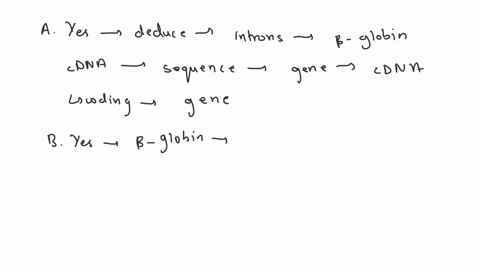 A. Yes → deduce → introns → β-globin
cDNA → sequence → gene → cDNA
↳coding → gene
B. Yes → β-globin →